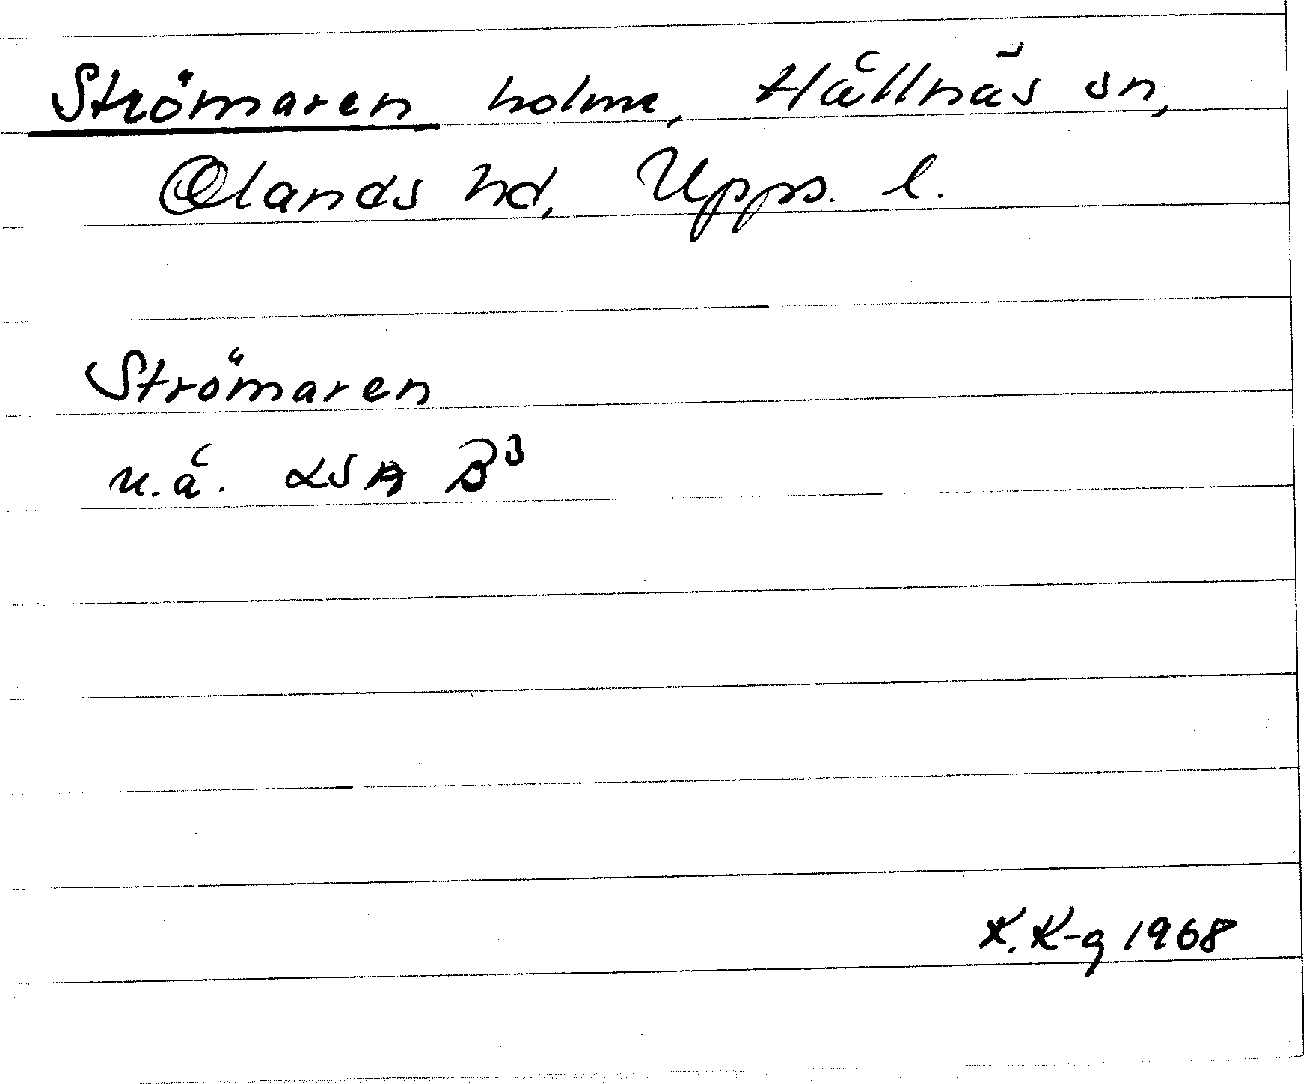 Strömaren holme, Hållnäs sn,
Olands hd, Upps. l.
Strömaren
u.å. LSA B3
K. K-g 1968